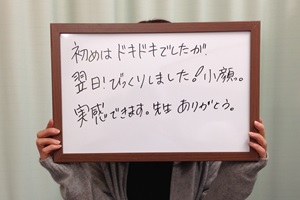 初めはドキドキでしたが!
翌日!びっくりしました!小顔。
実感できます。先生ありがとう。